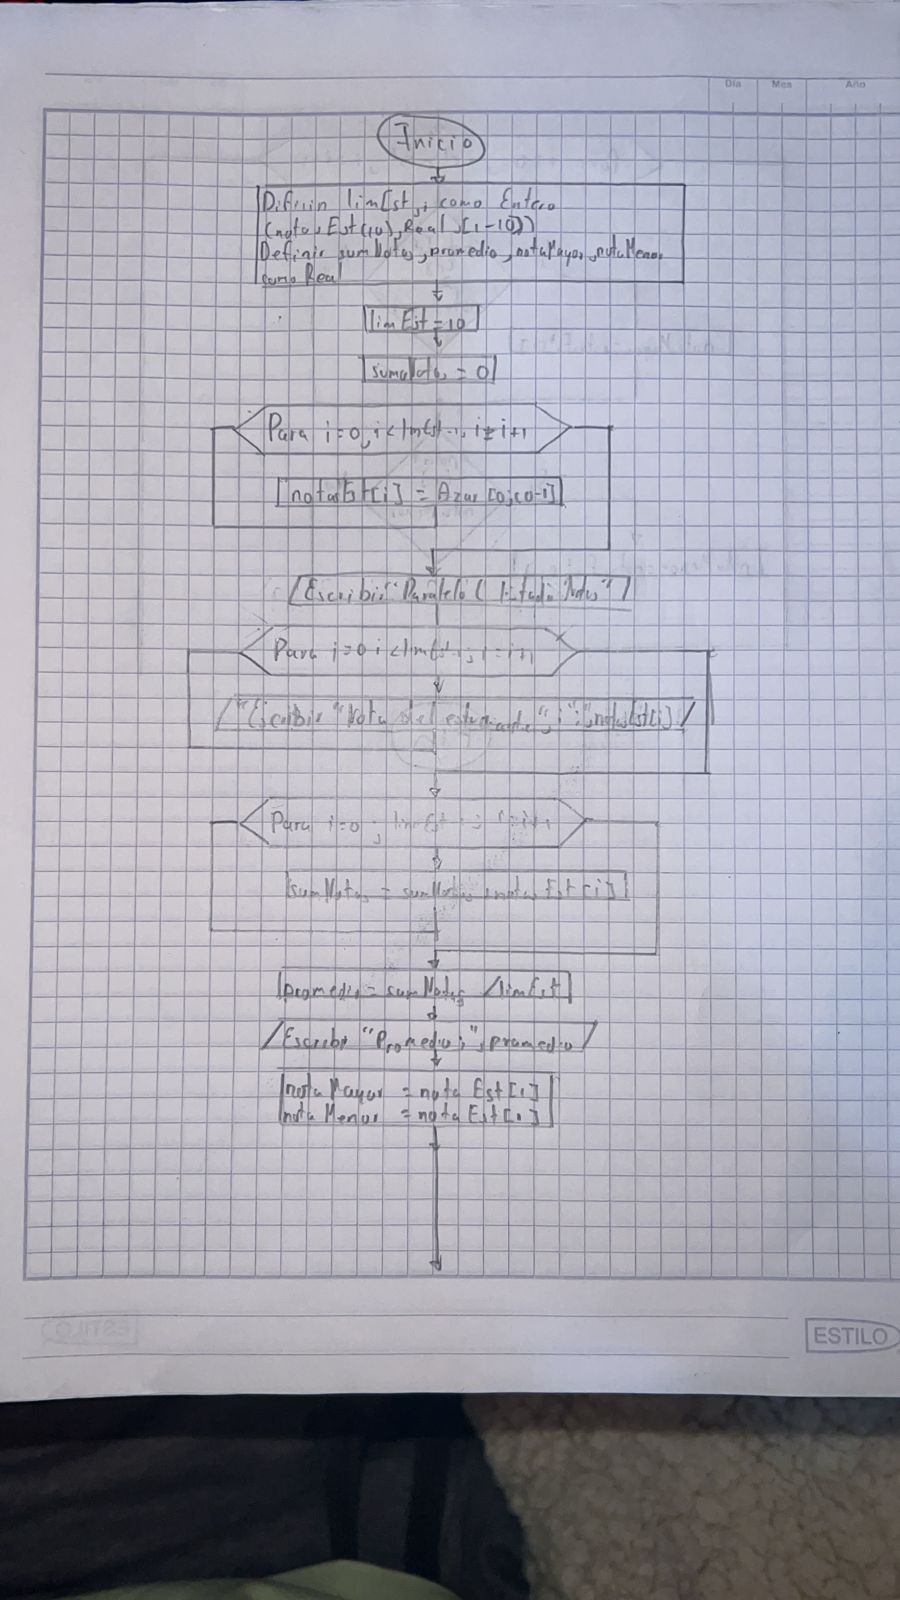 Día Mes Año
Inicio
Difinin limEst, i como Entero
(notasEst(10), Real, [1-10])
Definir sumNotas, promedio, notaMayor, notaMenor
como Real
limEst = 10
sumaNotas = 0
Para i=0, i<limEst-1, i=i+1
notasEst[i] = Azar
/Escribir "Paralelo
Para i=0 i<limEst-1; i=i+1
Escribir "Nota del estudiante", i ":", notasEst[i] /
Para i=0 ; limEst i=i+1
sumNotas = sumNotas, notas Est[i]
promedio = sumNotas /limEst
/Escribir "Promedio;", promedio/
nota Mayor = nota Est[1]
nota Menor = nota Est[1]
ESTILO